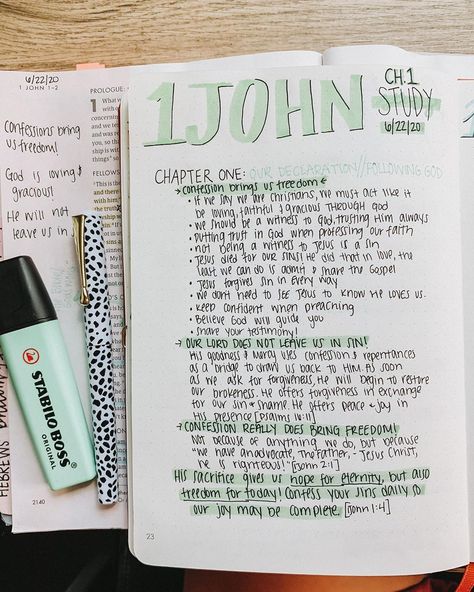 6/22/20
1 JOHN 1-2
Confessions bring
us freedom!
God is loving &
gracious!
He will not
leave us in
PROLOGUE:
FELLOWS
HEBREWS
2140
STABILO BOSS
ORIGINAL
1 JOHN
CH.1
STUDY
6/22/20
CHAPTER ONE: OUR DECLARATION//FOLLOWING GOD
→ confession brings us freedom ←
• If we say we are christians, we must act like it
be loving, faithful & gracious THROUGH GOD
• we should be a witness to God, trusting Him always
• putting trust in God when professing our faith
• not being a witness to Jesus is a sin
• Jesus died for our sins! He did that in love, the
least we can do is admit & share the Gospel
• Jesus forgives sin in every way
• we don't need to SEE Jesus to know He loves us.
• keep confident when preaching
• Believe God will guide you
• share your testimony!
→ OUR LORD DOES NOT LEAVE US IN SIN!
His goodness & mercy uses confession & repentances
as a bridge to draw us back to HIM. As soon
as we ask for forgiveness, He will begin to restore
our brokeness. He offers forgiveness in exchange
for our sin & shame. He offers peace & joy in
His presence [psalms 16:11]
→ CONFESSION REALLY DOES BRING FREEDOM!
Not because of anything we do, but because
"we have an advocate, The Father, - Jesus Christ,
he is righteous!" [1 John 2:1]
His sacrifice gives us hope for eternity, but also
freedom for today! Confess your sins daily so
our joy may be complete. [John 1:4]
23